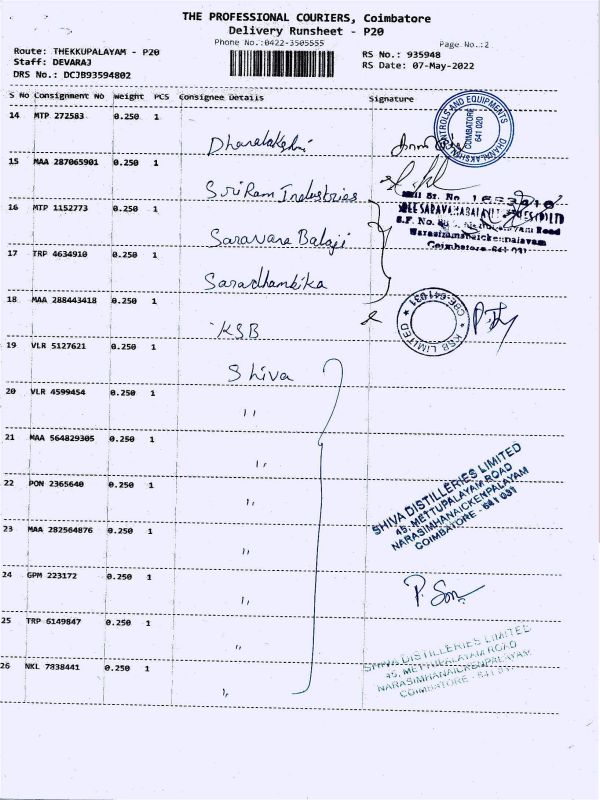 THE PROFESSIONAL COURIERS, Coimbatore
Delivery Runsheet - P20
Phone No.:0422-3505555
Page No.:2
Route: THEKKUPALAYAM - P20
RS No.: 935948
Staff: DEVARAJ
RS Date: 07-May-2022
DRS No.: DCJB93594802
S No Consignment No Weight PCS Consignee Details Signature
14 MTP 272583 0.250 1
Dhanalakshmi
CONTROLS AND EQUIPMENTS
COIMBATORE
641 020
15 MAA 287065901 0.250 1
Sri Ram Industries
16 MTP 1152773 0.250 1
Saravana Balaji
Coimbatore - 641 031
17 TRP 4634910 0.250 1
Saradhambika
18 MAA 288443418 0.250 1
KSB
KSB LIMITED
CBE-641031
19 VLR 5127621 0.250 1
Shiva
20 VLR 4599454 0.250 1
"
21 MAA 564829305 0.250 1
"
22 PON 2365640 0.250 1
"
SHIVA DISTILLERIES LIMITED
45, METTUPALAYAM ROAD
NARASIMHANAICKENPALAYAM
COIMBATORE - 641 031
23 MAA 282564876 0.250 1
"
24 GPM 223172 0.250 1
"
25 TRP 6149847 0.250 1
"
26 NKL 7838441 0.250 1
"
SHIVA DISTILLERIES LIMITED
45, METTUPALAYAM ROAD
NARASIMHANAICKENPALAYAM
COIMBATORE - 641 031